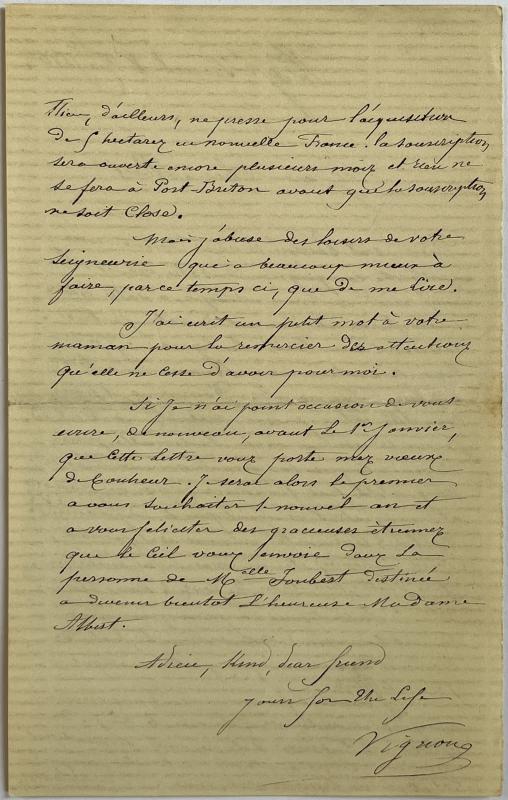 Rien, d'ailleurs, ne presse pour l'acquisition
de 5 hectares en nouvelle France. la souscription
sera ouverte encore plusieurs mois et rien ne
se fera à Port Breton avant que la souscription
ne soit Close.
Mais j'abuse des loisirs de votre
Seigneurie qui a beaucoup mieux à
faire, par ce temps ci, que de me lire.
J'ai écrit un petit mot à votre
maman pour la remercier des attentions
qu'elle ne Cesse d'avoir pour moi.
Si Je n'ai point occasion de vous
ecrire, de nouveau, avant le 1er Janvier,
que Cette lettre vous porte mes vœux
de bonheur. Je serai alors le premier
a vous souhaiter le nouvel an et
a vous feliciter des gracieuses étrennes
que le Ciel vous envoie dans la
personne de Melle Joubert destinée
a devenir bientot L'heureuse Madame
Albert.
Adieu, Kind, dear friend
yours for the Life
Vignon